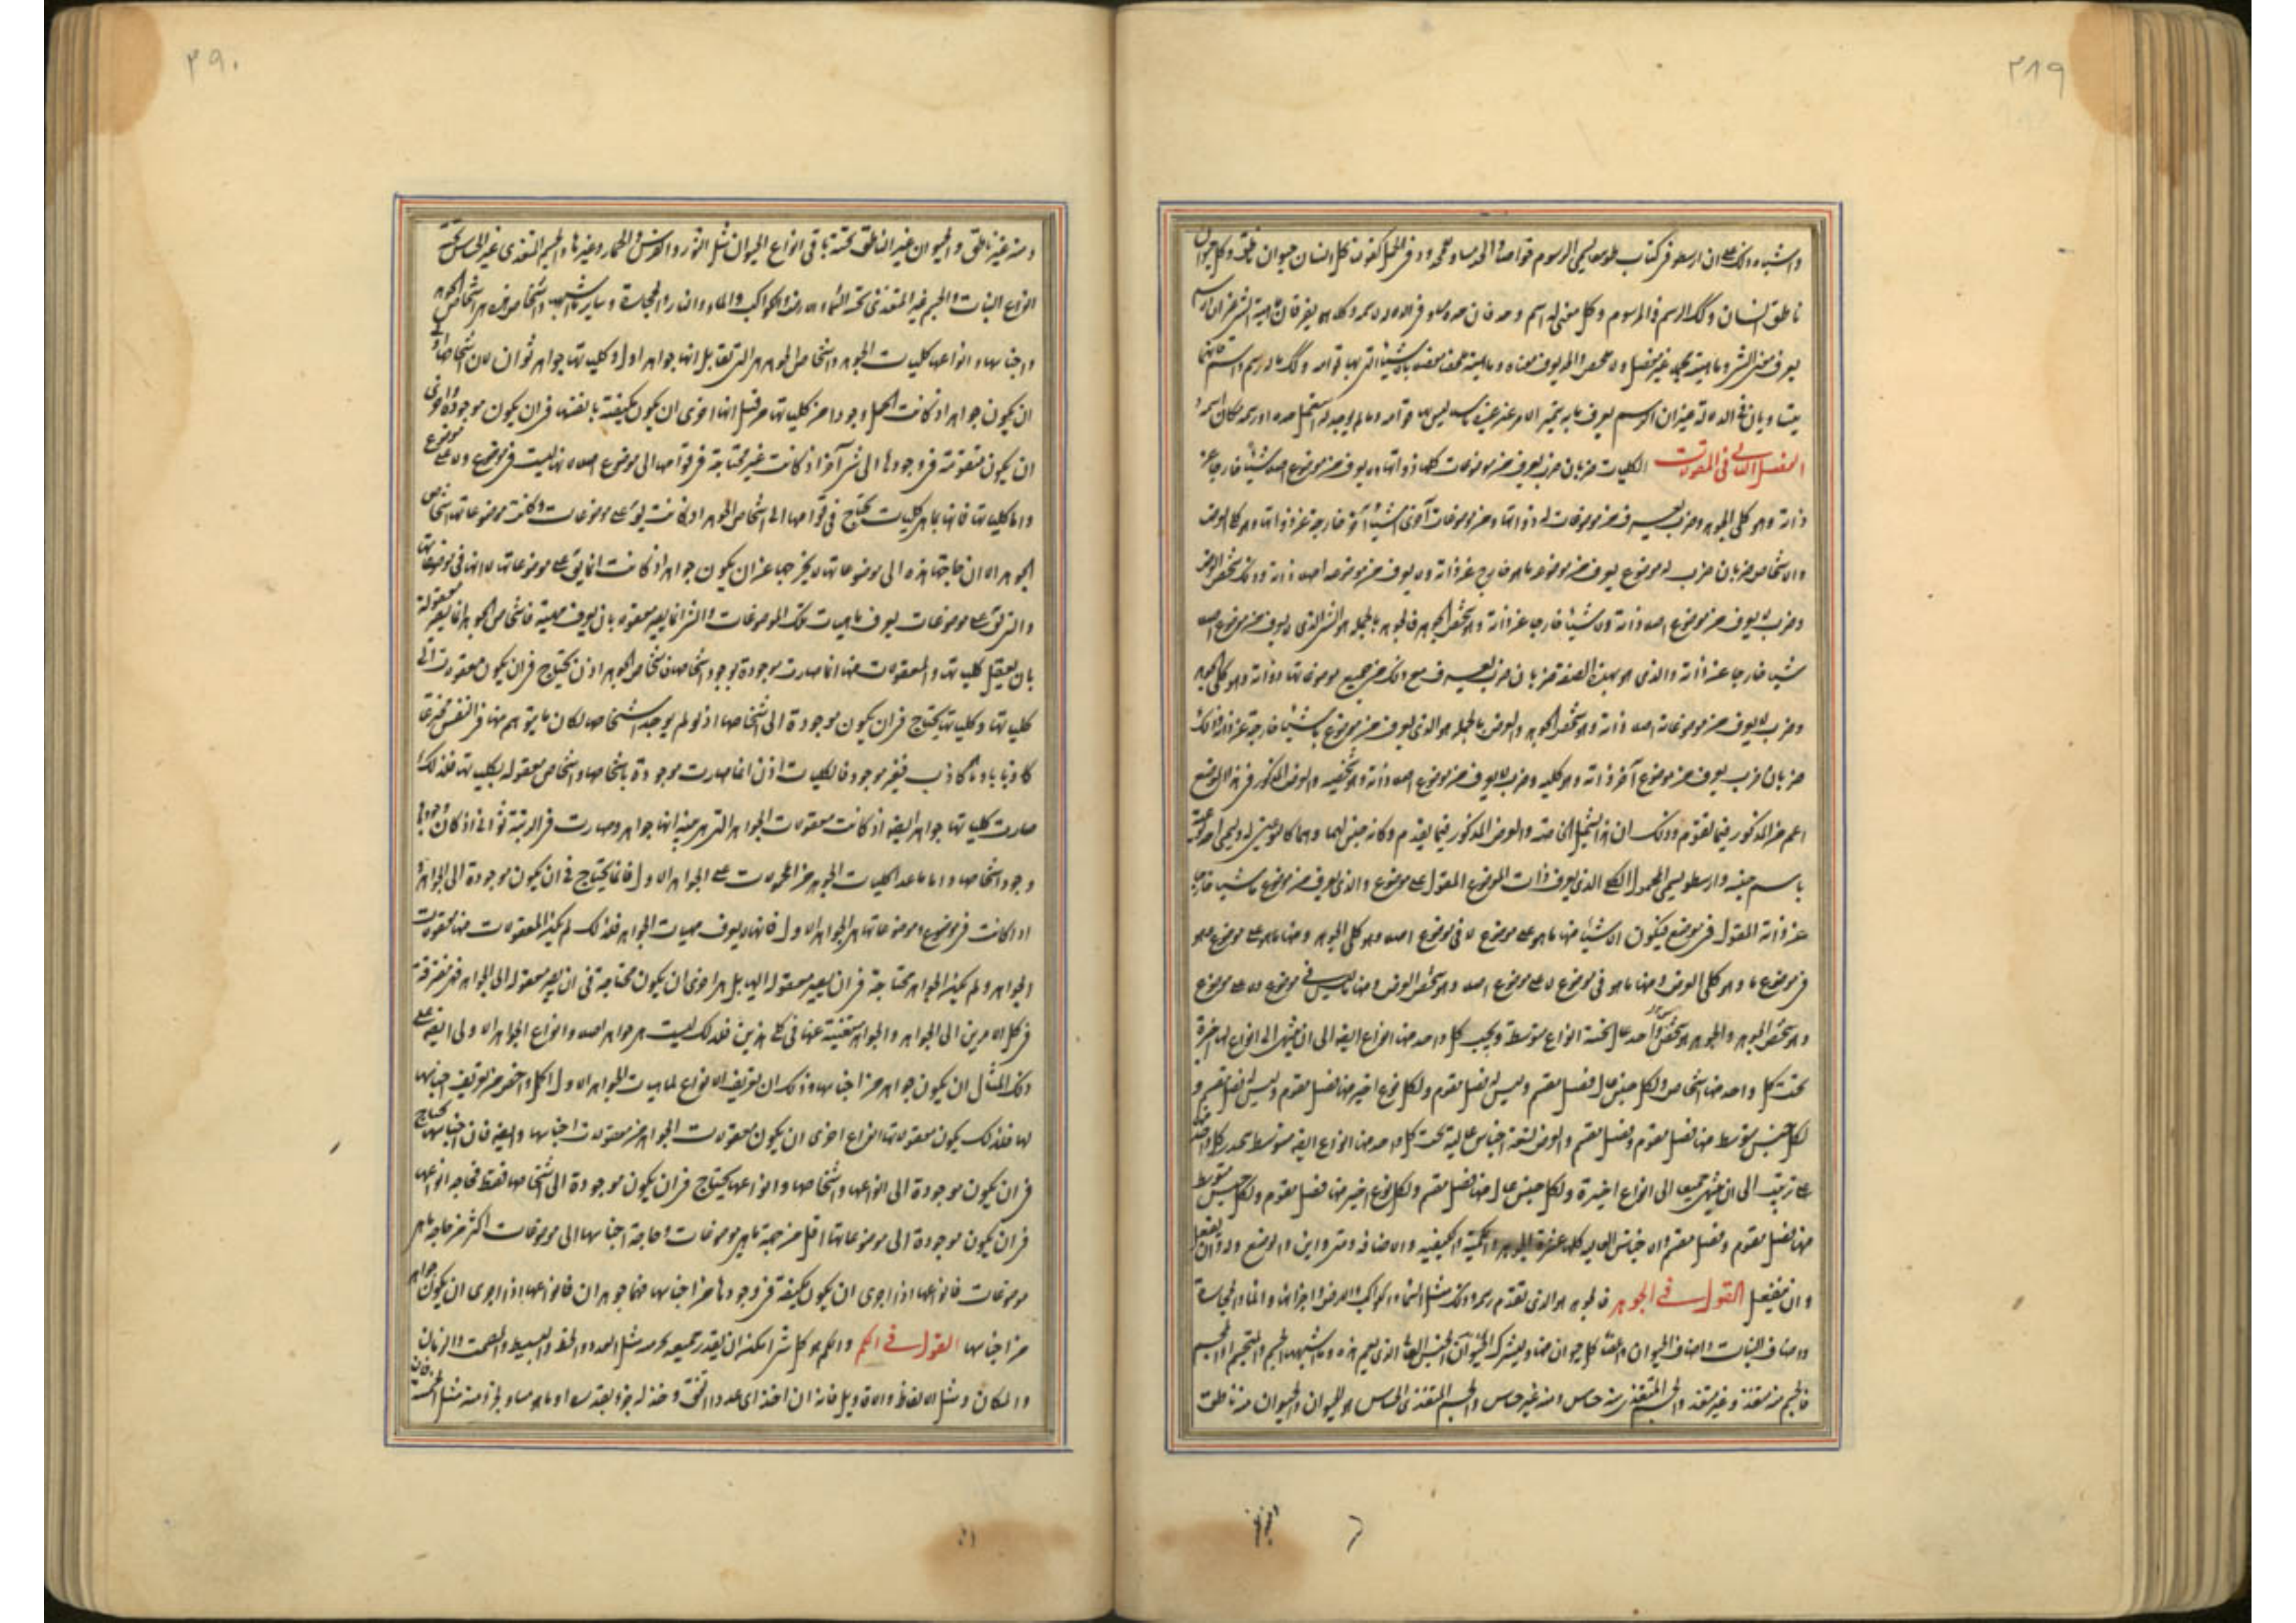 ٣٨٩
واشباه ذلك على ان ارسطو في كتاب طوبيقا يسمى الرسوم خواصا والحد مساو للمحدود في الحمل كقولنا كل انسان حيوان ناطق وكل حيوان
ناطق انسان وكذلك الرسم والمرسوم وكل معنى له اسم وحد فان حده مساو في الدلالة لاسمه
يعرف معنى الشيء وماهيته بجهة غير مفصل ولا ملخص والحد يعرف معناه وماهيته ملخصة مفصلة بالاشياء التي بها قوامه وكذلك الرسم والاسم فانهما
يتساويان في الدلالة غير ان الرسم يعرف ما به يتميز الامر عن غيره باشياء ليس بها قوامه وما لم يوجد له اسم استعمل حده او رسمه مكان اسمه
الفصل الثاني في المقولات الكليات ضربان ضرب يعرف من موضوعات كلها ذواتها ولا يعرف من موضوع اصلا شيئا خارجا عن
ذاته وهو كلي الجوهر وضرب يعرف من موضوعات له ذواتها ومن موضوعات اخرى اشياء اخر خارجة عن ذواتها وهو كلي العرض
والاشخاص ضربان ضرب له موضوع يعرف من موضوعه ما هو خارج عن ذاته ولا يعرف من موضوعه اصلا ذاته وذلك شخص العرض
وضرب لا يعرف من موضوع اصلا ذاته ولا شيئا خارجا عن ذاته وهو شخص الجوهر فالجوهر بالجملة هو الشيء الذي لا يعرف من موضوع اصلا
شيئا خارجا عن ذاته والذي هو بهذه الصفة ضربان ضرب يعرف مع ذلك من جميع موضوعاتها ذواته وهو كلي الجوهر
وضرب لا يعرف من موضوعاته اصلا ذاته وهو شخص الجوهر والعرض بالجملة هو الذي يعرف من موضوع ما شيئا خارجة عن ذاته وذلك
ضربان ضرب يعرف من موضوع آخر ذاته وهو كليه وضرب لا يعرف من موضوع اصلا ذاته وهو شخصيه والعرض المذكور في هذا الموضع
اعم من المذكور فيما تقدم وذلك ان هذا يشتمل الخاصة والعرض المذكور فيما تقدم وكانه جنس لهما وهما كالنوعين له
باسم جنسه وارسطو يسمى المحمول الكلي الذي يعرف ذات الموضوع المقول على موضوع والذي يعرف من موضوع ما شيئا خارجا
عن ذاته المقول في موضوع فيكون الاشياء منها ما هو على موضوع لا في موضوع اصلا وهو كلي الجوهر ومنها ما هو على موضوع وهو
في موضوع ما وهو كلي العرض ومنها ما هو في موضوع لا على موضوع اصلا وهو شخص العرض ومنها ما ليس في موضوع ولا على موضوع
وهو شخص الجوهر والجوهر جنس واحد عال تحته انواع متوسطة وتحت كل واحد منها انواع ايضا الى ان ينتهي الى انواع لها اخيرة
تحت كل واحد منها اشخاص ولكل جنس عال فصل مقسم وليس له فصل مقوم ولكل نوع اخير منها فصل مقوم وليس له فصل مقسم و
لكل جنس متوسط منها فصل مقوم وفصل مقسم والعرض تسعة اجناس عالية تحت كل واحد منها انواع ايضا متوسطة
على ترتيب الى ان ينتهي جميعا الى انواع اخيرة ولكل جنس عال منها فصل مقسم ولكل نوع اخير منها فصل مقوم ولكل جنس متوسط
منها فصل مقوم وفصل مقسم والاجناس العالية كلها عشرة الجوهر والكمية والكيفية والاضافة ومتى واين والوضع وله وان يفعل
وان ينفعل القول في الجوهر فالجوهر هو الذي تقدم رسمه وذلك مثل السماء والكواكب والارض واجزائها والماء والحجارة
واصناف النبات واصناف الحيوان واعضاء كل حيوان
فالجسم منه متغذ وغير متغذ والجسم المتغذي منه حساس ومنه غير حساس والجسم المتغذي الحساس هو الحيوان والحيوان منه ناطق
٣٩٠
ومنه غير ناطق والحيوان غير الناطق تحته باقي انواع الحيوان مثل الثور والفرس والحمار وغيرها والجسم المتغذي غير الحساس تحته
انواع النبات والجسم غير المتغذي تحته السماء والارض والكواكب والماء والنار والحجارة وسائر ما اشبهها واشخاص هذه هي اشخاص الجوهر
واجناسها وانواعها كليات الجوهر واشخاص الجوهر هي التي يقال انها جواهر اول وكلياتها جواهر ثوان لان اشخاصها اولى
ان يكون جواهر اذ كانت اكمل وجودا من كلياتها من قبل انها احرى ان يكون مكتفية بانفسها في ان يكون موجودة واحرى
ان يكون متقومة في وجودها الى شيء آخر اذ كانت غير محتاجة في قوامها الى موضوع اصلا لانها ليست في موضوع ولا على موضوع
واما كلياتها فانها بما هي كليات تحتاج في قوامها الى اشخاص الجوهر اذ كانت يقال على موضوعات وكانت موضوعاتها اشخاص
الجوهر الا ان حاجتها هذه الى موضوعاتها لا يخرجها عن ان يكون جواهر اذ كانت انما يقال على موضوعاتها لا انها في موضوعاتها
والتي يقال على موضوعات يعرف ماهيات تلك الموضوعات والشيء انما يصير معقولا بان يعرف ماهيته فاشخاص الجوهر انما يصير معقولة
بان يعقل كلياتها والمعقولات منها انما صارت موجودة بوجود اشخاصها فاشخاص الجوهر اذن يحتاج في ان يكون معقولة الى
كلياتها وكلياتها يحتاج في ان يكون موجودة الى اشخاصها اذ لو لم يوجد اشخاصها لكان ما يتوهم منها في النفس مخترعا
كاذبا وما كذب فغير موجود فالكليات اذن انما صارت موجودة باشخاصها واشخاص معقولة بكلياتها فلذلك
صارت كلياتها جواهر ايضا اذ كانت معقولات الجواهر التي هي بينة انها جواهر وصارت في الرتبة ثواني اذ كان وجودها
وجود اشخاصها واما ما عدا كليات الجوهر من المحمولات على الجواهر الاول فانما يحتاج في ان يكون موجودة الى الجواهر
اذ كانت في موضوع وموضوعاتها هي الجواهر الاول فانها لا يعرف ماهيات الجواهر فلذلك لم يكن المعقولات منها معقولات
الجواهر ولم يكن الجواهر محتاجة في ان يصير معقولة اليها بل هي احرى ان يكون محتاجة في ان يصير معقولة الى الجواهر فهي مفتقرة
في كل الامرين الى الجواهر والجواهر مستغنية عنها في كل هذين فلذلك ليست هي جواهر اصلا وانواع الجواهر الاولى ايضا على
ذلك المثال ان يكون جواهر من اجناسها وذلك ان تعريف الانواع لماهيات الجواهر الاول اكمل واخص من تعريف اجناسها
لها فلذلك يكون معقولاتها انواع احرى ان يكون معقولات الجواهر من معقولات اجناسها وايضا فان اجناسها تحتاج
في ان يكون موجودة الى انواعها واشخاصها وانواعها يحتاج في ان يكون موجودة الى اشخاصها فقط فحاجة انواعها
في ان يكون موجودة الى موضوعاتها اقل من جهة ما هي موضوعات وحاجة اجناسها الى موضوعات اكثر من حاجة ما هي
موضوعات فانواعها اذن احرى ان يكون مكتفية في وجودها من اجناسها فهما جوهران فانواعها اذن احرى ان يكون جواهر
من اجناسها القول في الكم والكم هو كل شيء امكن ان يقدر جميعه بجزء منه مثل العدد والخط والبسيط والمصمت والزمان
والمكان ومثل الالفاظ والاقاويل فانه ان اخذ اي عدد اتفق وجد له جزء يقدره